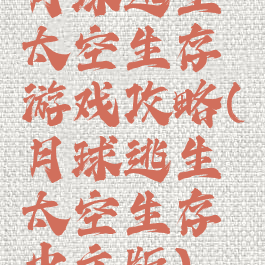 月球逃生
太空生存
游戏攻略(
月球逃生
太空生存
中文版)